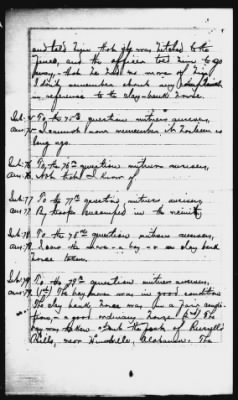 and told him that she was hitched to the
fence, and the officer told him to go
away, that he had no more of him.
I don't remember about any complaint
in reference to the clay-bank horse.
Int. 75 To the 75th question witness answers,
ans. 75 I cannot now remember, it has been so
long ago.
Int. 76 To the 76th question witness answers,
ans. 76 Not that I know of
Int. 77 To the 77th question, witness answers,
ans. 77 By troops encamped in the vicinity
Int. 78 To the 78th question witness answers,
ans. 78 I saw the mare - a bay - & a clay bank
horse taken.
Int. 79 To the 79th question witness answers,
ans. 79 (1st) The bay mare was in good condition
The clay bank horse was in a fair condi-
tion, - a good ordinary horse (2nd) The
bay was taken at the foot of Russell's
Hill, near Huntsville, Alabama. The